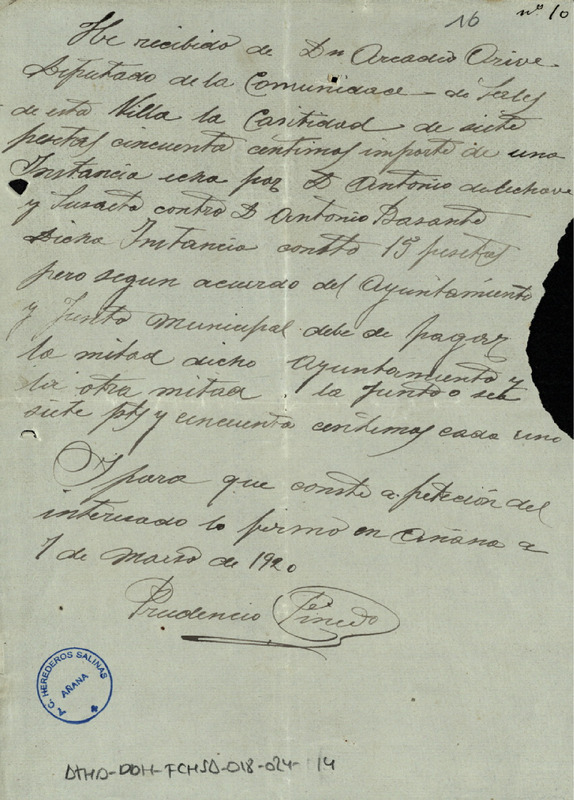 16 nº 10
He recibido de Dn Arcadio Orive
Diputado de la Comunidad de Sales
de esta Villa la Cantidad de siete
pesetas cincuenta centimos importe de una
Instancia echa por D Antonio
y Susaeta contra D Antonio Basante
Dicha Instancia consto 15 pesetas
pero segun acuerdo del Ayuntamiento
y Junta Municipal debe de pagar
la mitad dicho Ayuntamiento y
la otra mitad la Junta o sea
siete pts y cincuenta centimos cada uno
Y para que conste a peticion del
interesado lo firmo en Añana a
1 de Marzo de 1920
Prudencio Pinedo
C. HEREDEROS SALINAS
AÑANA
ATHA-DDH-FCHSA-018-024-14